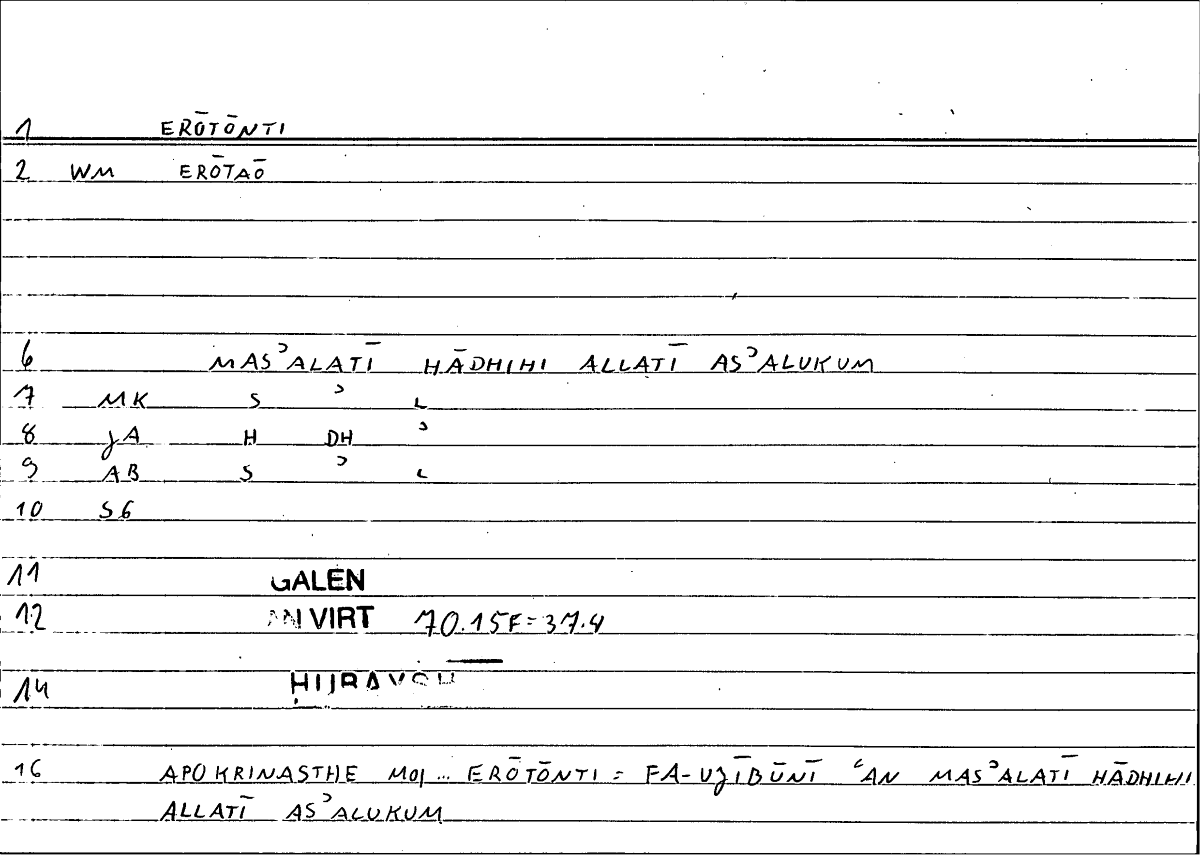 1 ERŌTŌNTI
2 WM ERŌTAŌ
6 MASʾALATĪ HĀDHIHI ALLATĪ ASʾALUKUM
7 MK S ʾ L
8 JA H DH ʾ
9 AB S ʾ L
10 S6
11 GALEN
12 AN VIRT 70.15F=37.4
14 ḤUBAYSH
16 APOKRINASTHE MOI ... ERŌTŌNTI = FA-UJĪBŪNĪ ʿAN MASʾALATĪ HĀDHIHI
ALLATĪ ASʾALUKUM